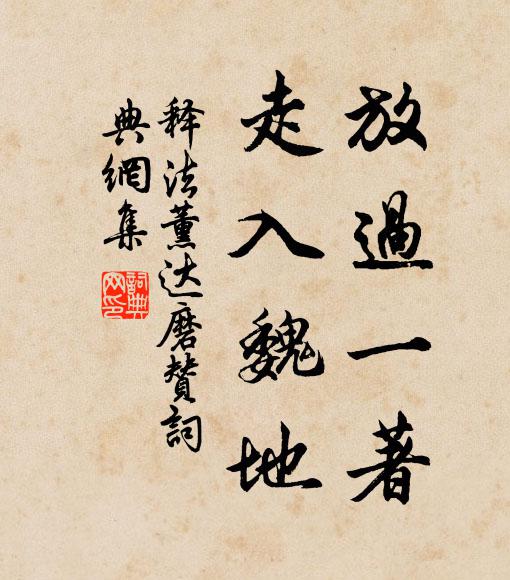 放過一著
走入魏地
释法薰达磨贊詞
典網集
詞典
网印